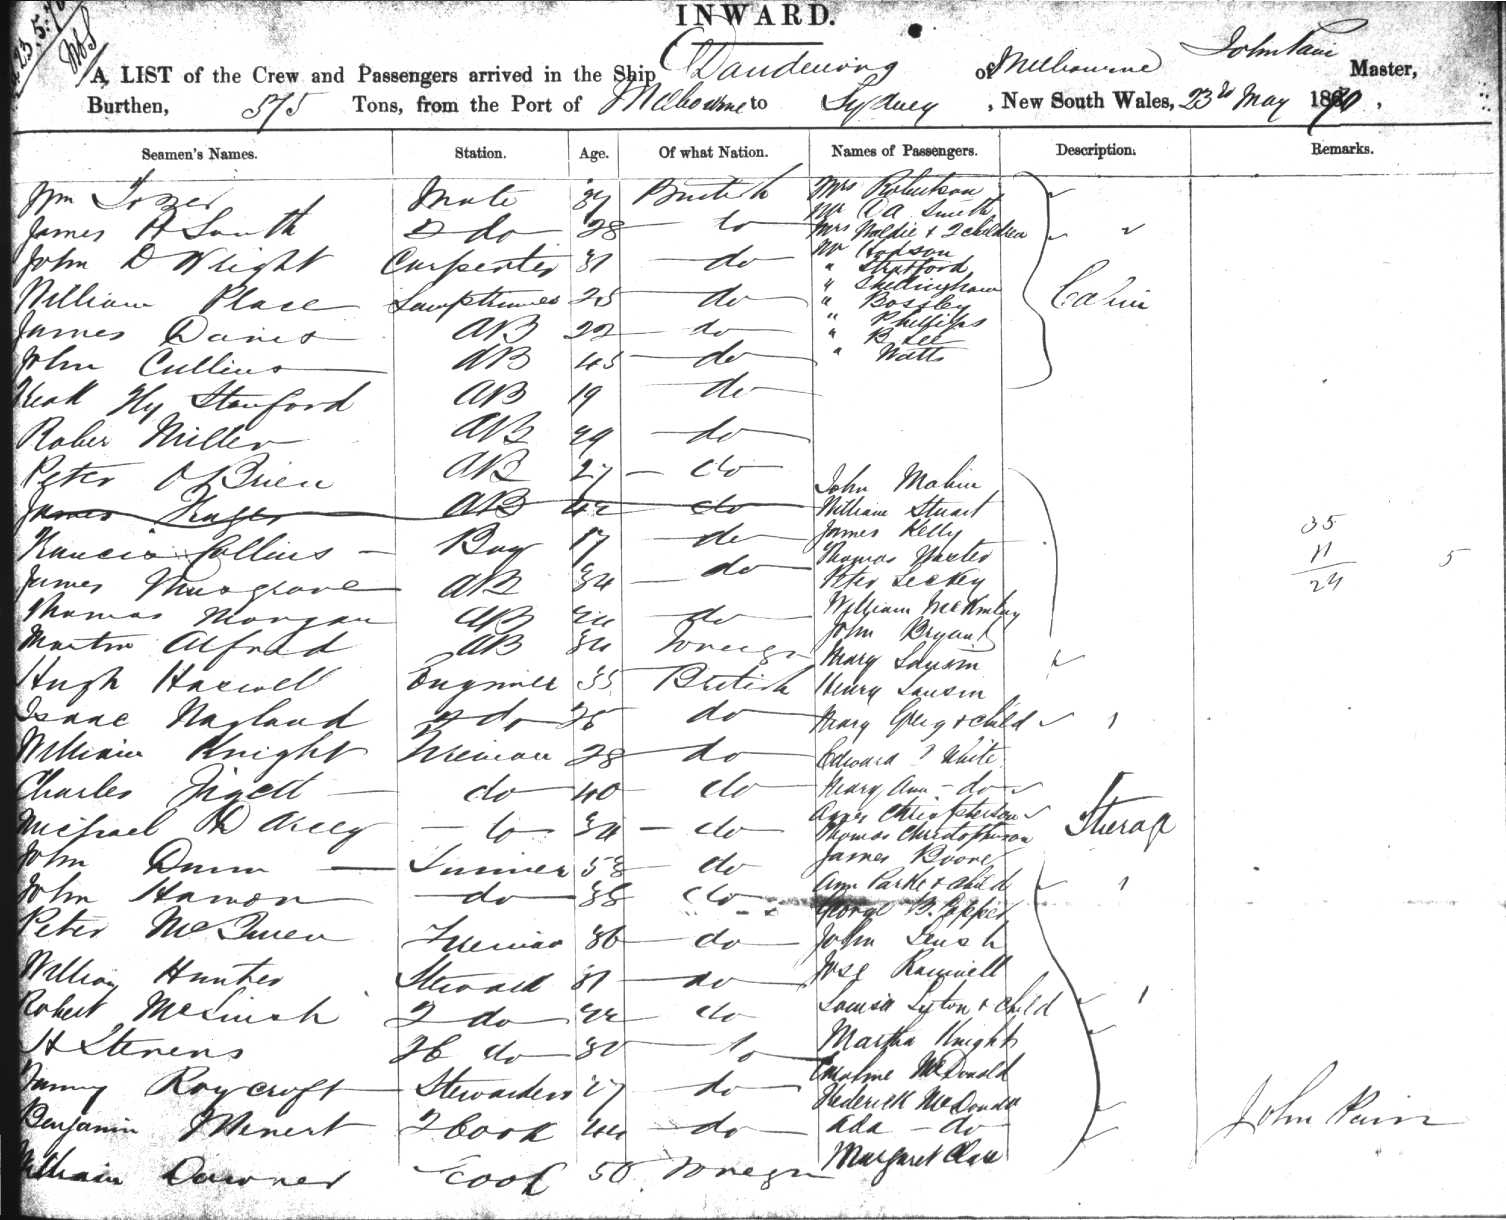 23.5.70
INWARD.
A LIST of the Crew and Passengers arrived in the Ship Dandenong of Melbourne John Pain Master,
Burthen, 575 Tons, from the Port of Melbourne to Sydney, New South Wales, 23rd May 1870,
Seamen's Names. Station. Age. Of what Nation. Names of Passengers. Description. Remarks.
Wm Tozer Mate 37 British
James A South 2 do 28 do
John D Wright Carpenter 31 do
William Place Lamptrimer 25 do
James Davis AB 22 do
John Cullins AB 45 do
Hy Stanford AB 19 do
Rober Miller AB 29 do
Peter O'Brien AB 27 do
James Fraser AB 42 do
Francis Collins Boy 17 do
James Musgrave AB 34 do
Thomas Morgan AB 24 do
Martin Alfred AB 34 Foreign
Hugh Haswell Engineer 35 British
Isaac 2 do 25 do
William Knight Fireman 28 do
Charles do 40 do
Michael Darcy do 34 do
John Dunn Trimmer 58 do
John Hamon do 38 do
Peter Fireman 36 do
William Hunter Steward 31 do
Robert McLeish 2 do 22 do
H Stevens 2C do 30 do
Fanny Roycroft Stewardess 27 do
Benjamin 2 Cook 44 do
William Downer Cook 50 Foreign
Mrs Robertson
Mr A A Smith
Mrs Waldie & 2 children
Mr Hodson
" Stratford
" Skellingham
" Bossley
" Phillips
" B Lee
" Watts
Cabin
John Mahin
William Stuart
James Kelly
Thomas
Peter Leckey
William McKinlay
John Bryant
Mary Lawsin
Henry Lawsin
Mary Greig & child 1
Edward White
Mary Ann do
Agnes Christopherson
Thomas Christopherson
James Boone
Ann Parke & child 1
George B. Copper
John Leush
Jose Ramwell
Louisa Lyton & child 1
Martha Knights
McDonald
Frederick McDonald
Ada do
Margaret Clare
Sterage
35
11
24
5
John Pain